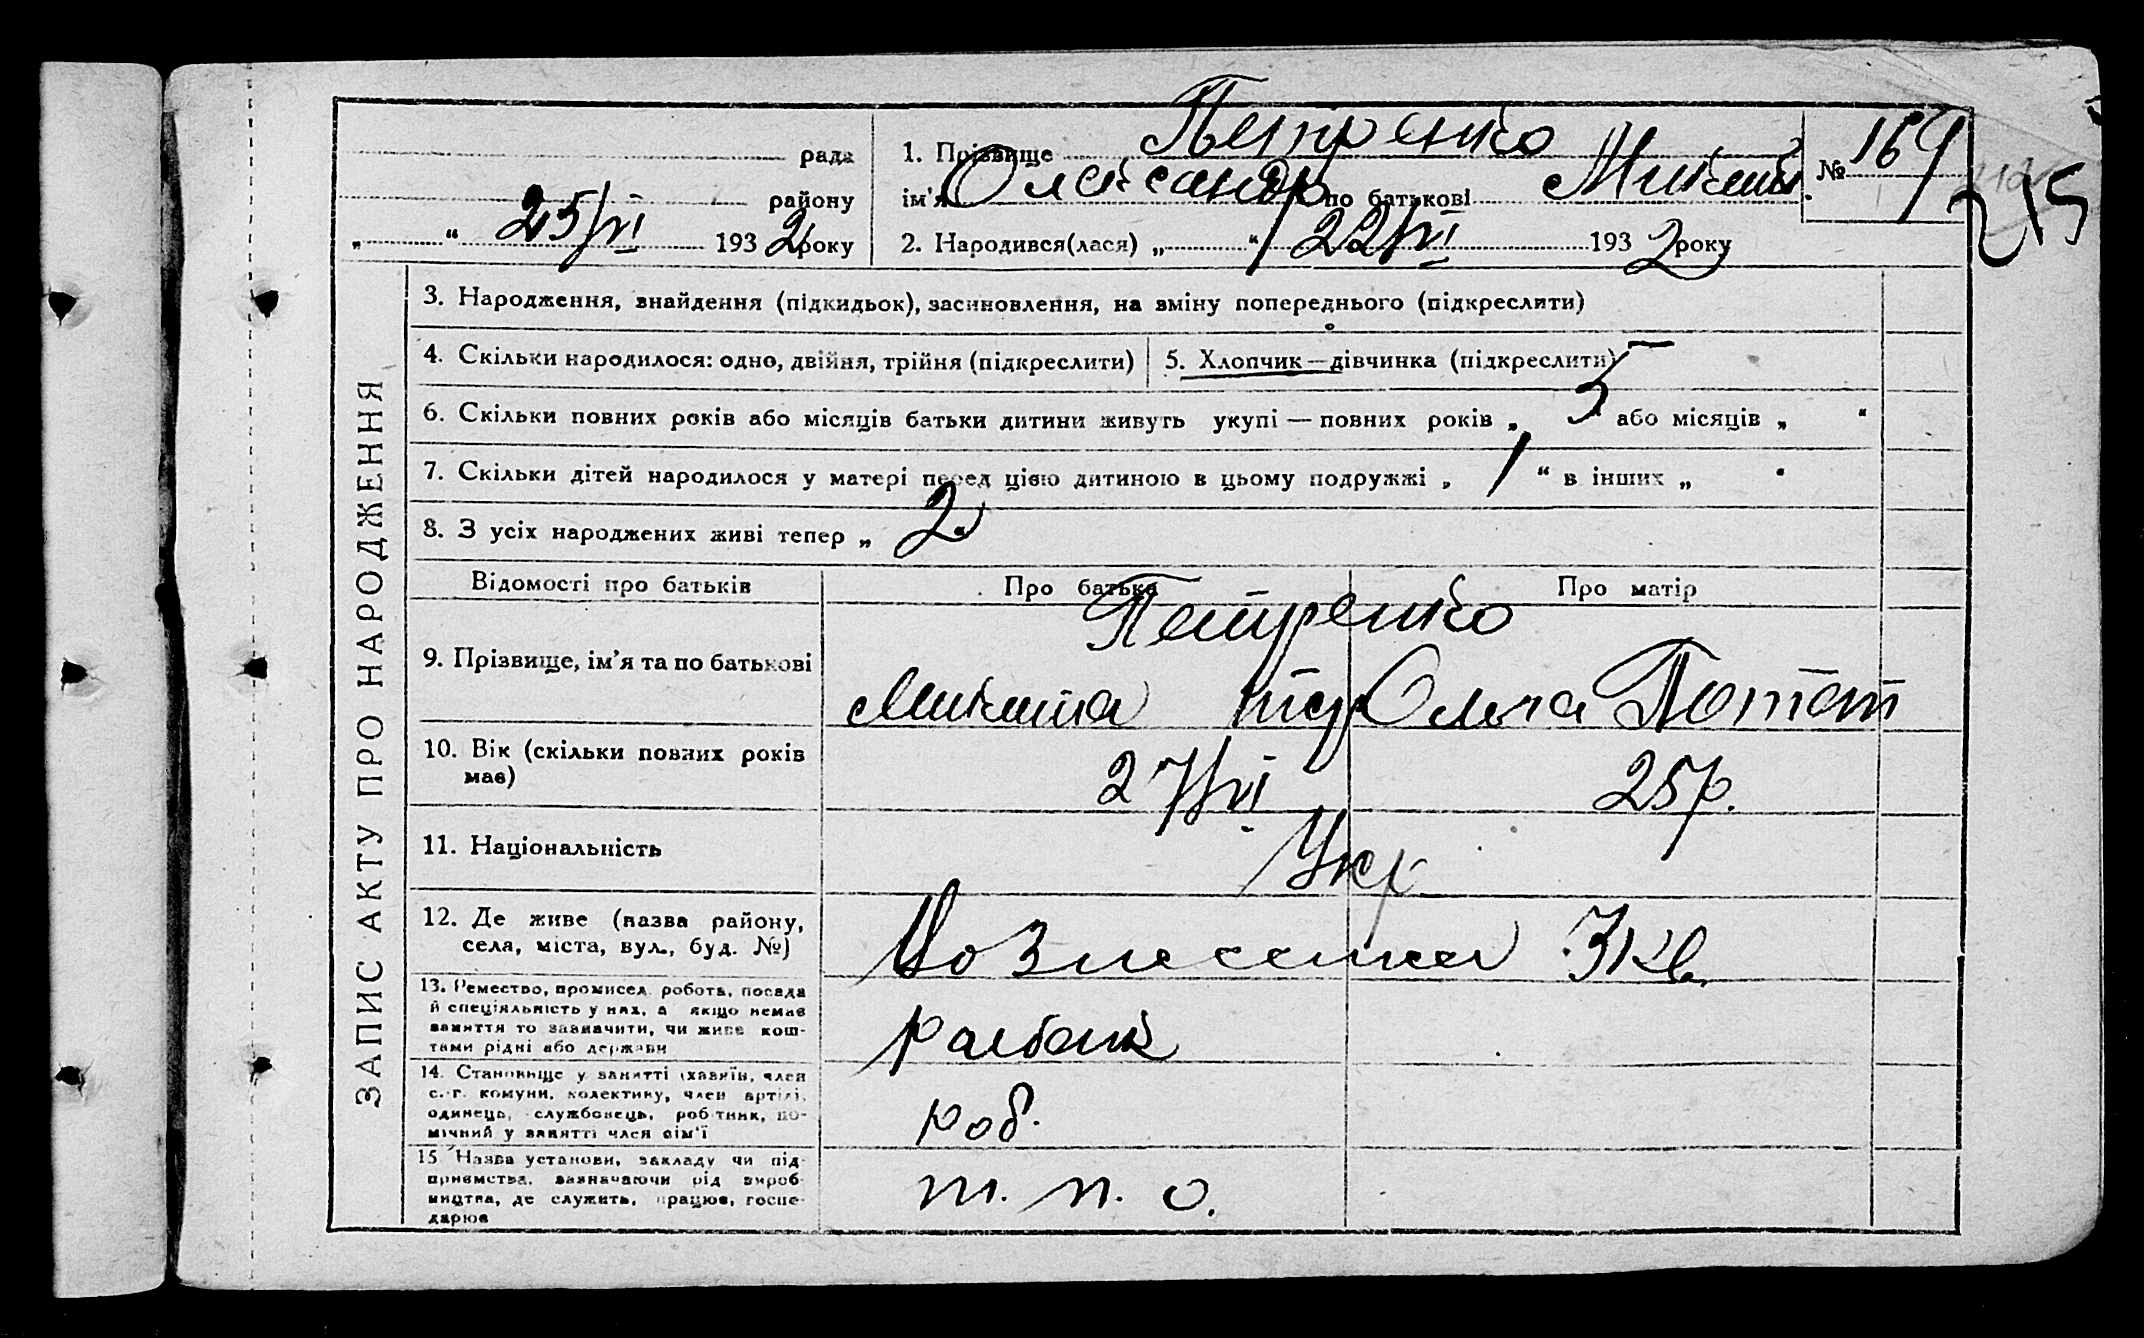 рада
району
„ “ 25/VI 1932 року
1. Прізвище Петренко
ім'я Олександр по батькові Микит.
2. Народився(лася) „ “ 22/VI 1932 року
№ 169
215
ЗАПИС АКТУ ПРО НАРОДЖЕННЯ
3. Народження, знайдення (підкидьок), засиновлення, на зміну попереднього (підкреслити)
4. Скільки народилося: одно, двійня, трійня (підкреслити)
5. Хлопчик — дівчинка (підкреслити)
6. Скільки повних років або місяців батьки дитини живуть укупі — повних років „ 5 “ або місяців „ “
7. Скільки дітей народилося у матері перед цією дитиною в цьому подружжі „ 1 “ в інших „ “
8. З усіх народжених живі тепер „ 2
Відомості про батьків
Про батька
Про матір
9. Прізвище, ім'я та по батькові
Петренко
Микита
Ольга
10. Вік (скільки повних років
має)
27/VI
25р.
11. Національність
Укр
12. Де живе (назва району,
села, міста, вул., буд. №)
Вознесенка 3 кв.
13. Ремество, промисел, робота, посада
й спеціяльність у них, а якщо немає
заняття то зазначити, чи живе кош-
тами рідні або держави
14. Становище у занятті (хазяїн, член
с.-г. комуни, колективу, член артілі,
одинець, службовець, робітник, по-
мічний у занятті член сім'ї
роб.
15 Назва установи, закладу чи під-
приємства, зазначаючи рід вироб-
ництва, де служить, працює, госпо-
дарює
т. п. о.